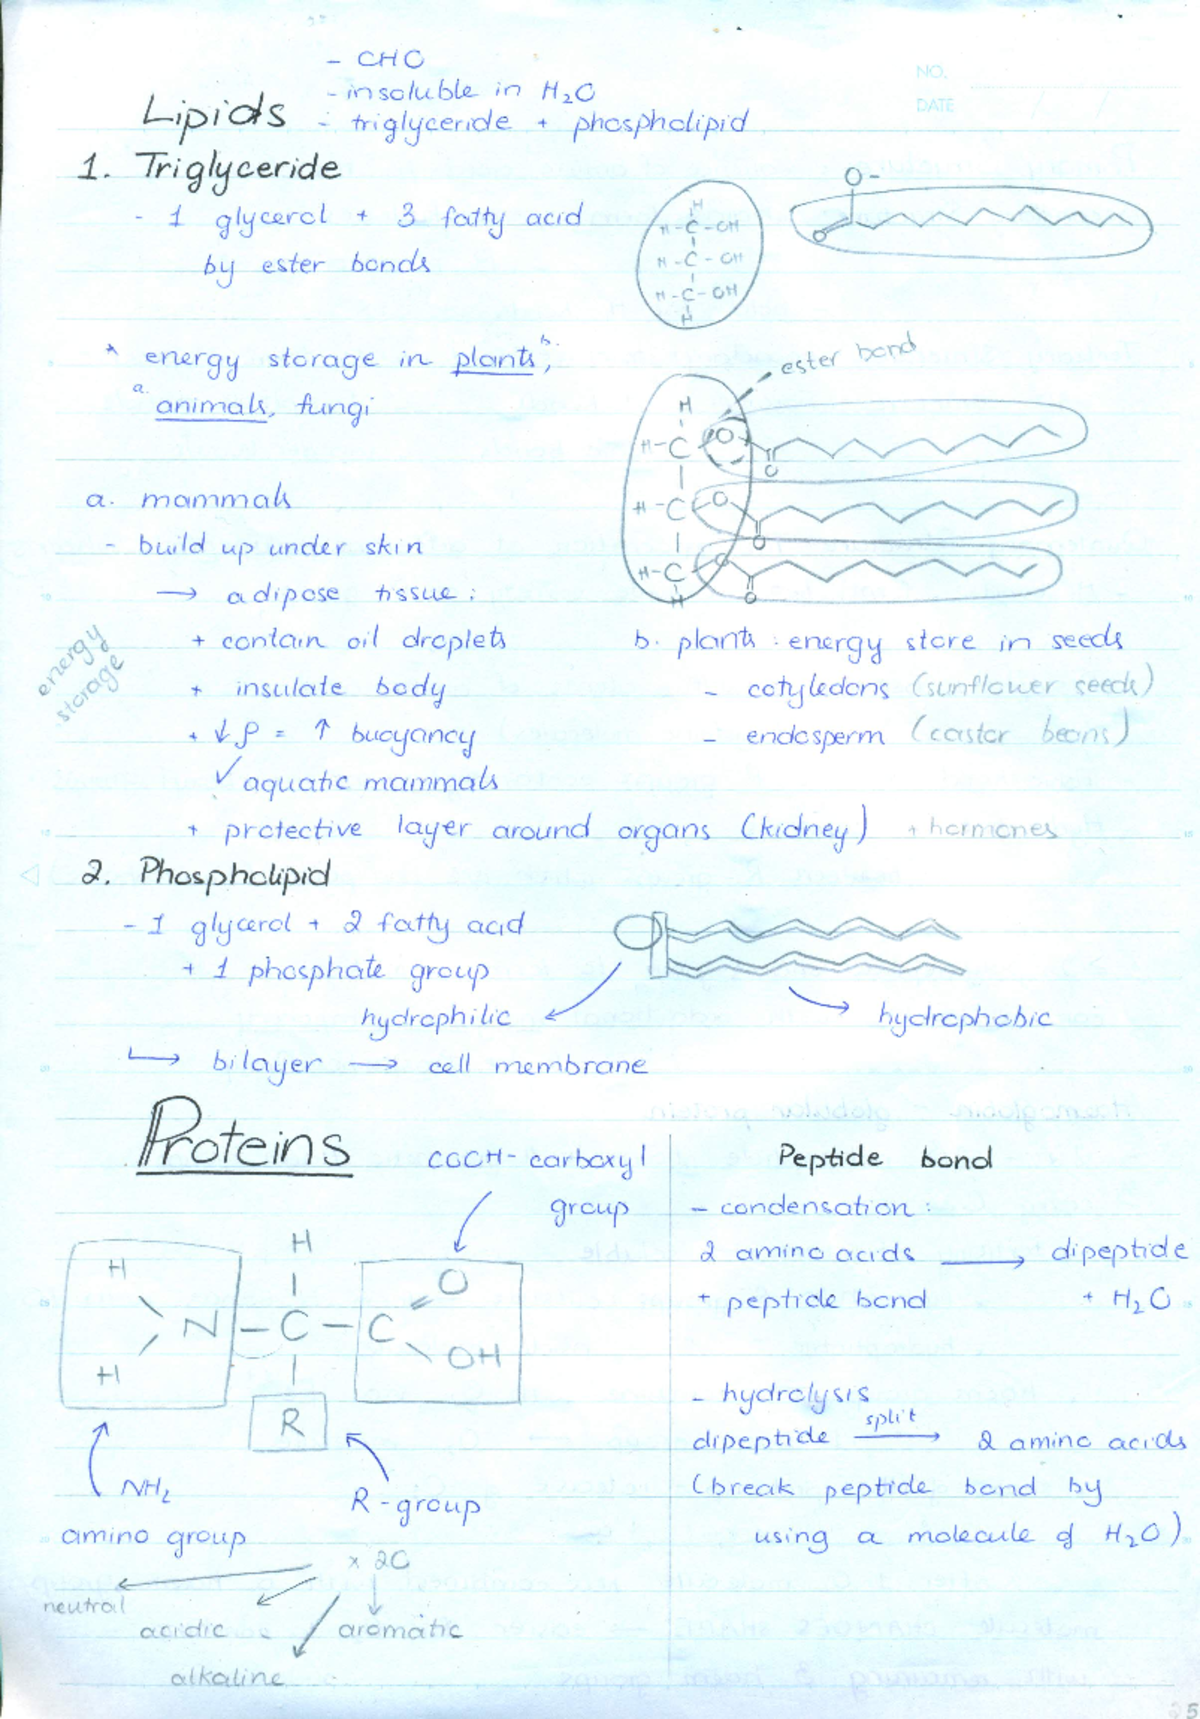 - CHO
- insoluble in H₂O
Lipids - triglyceride + phospholipid
NO.
DATE / /
1. Triglyceride
- 1 glycerol + 3 fatty acid
by ester bonds
H
H-C-OH
H-C-OH
H-C-OH
H
O-
O
* energy storage in plants b.,
a. animals, fungi
ester bond
H
H-C O
O
H-C O
O
H-C O
O
H
a. mammals
- build up under skin
→ adipose tissue:
energy storage
+ contain oil droplets
+ insulate body
+ ↓ ρ = ↑ buoyancy
✓ aquatic mammals
+ protective layer around organs (kidney) + hormones
b. plants: energy store in seeds
- cotyledons (sunflower seeds)
- endosperm (castor beans)
2. Phospholipid
- 1 glycerol + 2 fatty acid
+ 1 phosphate group
hydrophilic
hydrophobic
↳ bilayer → cell membrane
Proteins
COOH- carboxyl
group
H
H
N - C - C
O
OH
H
R
NH₂
amino group
R-group
x 20
neutral
acidic
aromatic
alkaline
Peptide bond
- condensation:
2 amino acids → dipeptide
+ peptide bond + H₂O
- hydrolysis
dipeptide split → 2 amino acids
(break peptide bond by
using a molecule of H₂O)
25